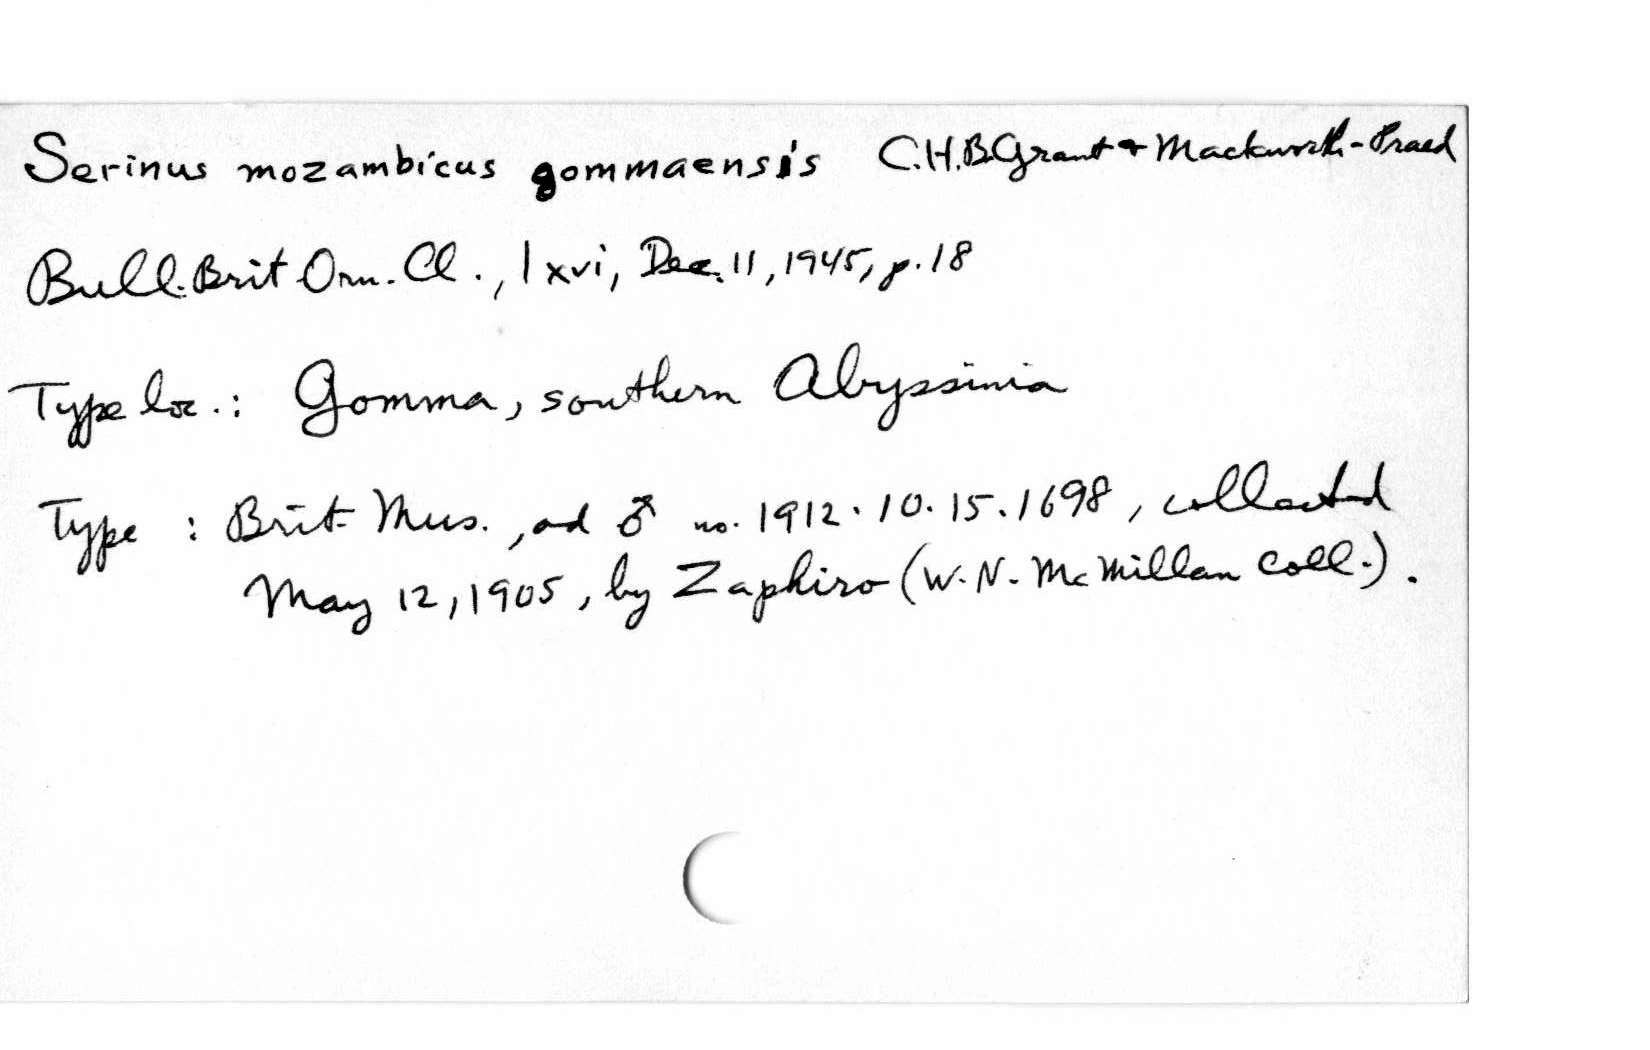 Serinus mozambicus gommaensis C.H.B.Grant & Mackworth-Praed
Bull. Brit Orn. Cl., lxvi, Dec. 11, 1945, p. 18
Type loc.: Gomma, southern Abyssinia
Type : Brit. Mus., ad ♂ no. 1912.10.15.1698, collected
May 12, 1905, by Zaphiro (W. N. McMillan Coll.).